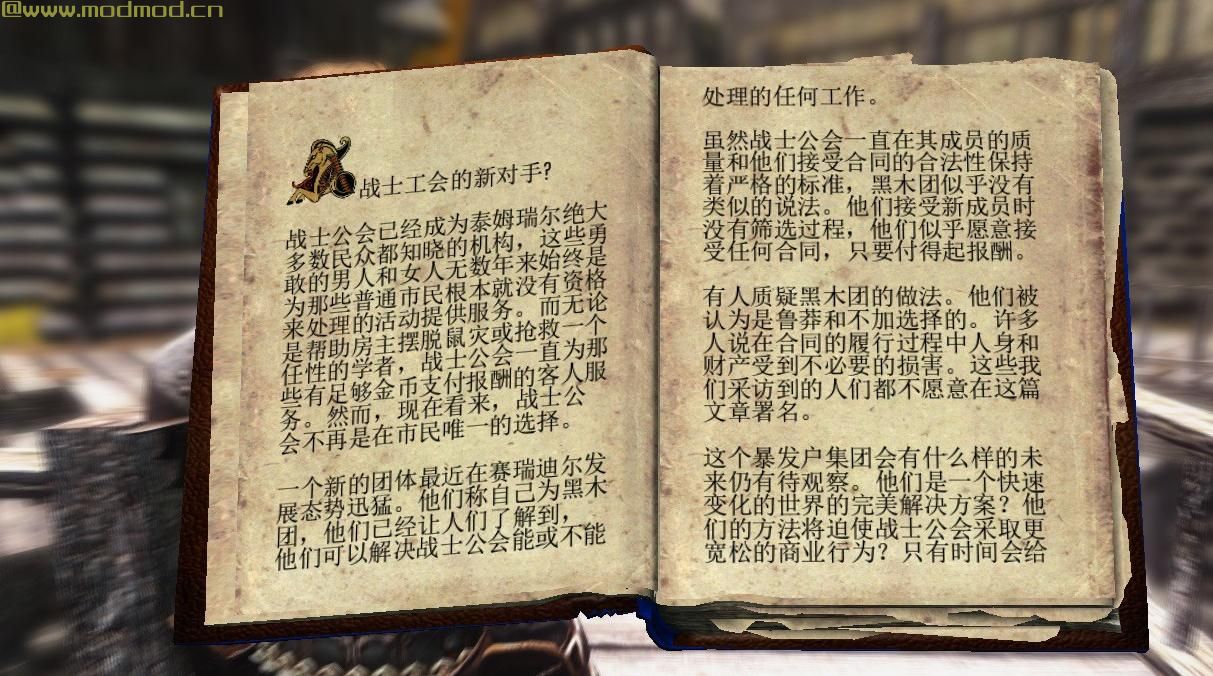 @www.modmod.cn
战士工会的新对手?
战士公会已经成为泰姆瑞尔绝大
多数民众都知晓的机构，这些勇
敢的男人和女人无数年来始终是
为那些普通市民根本就没有资格
来处理的活动提供服务。而无论
是帮助房主摆脱鼠灾或抢救一个
任性的学者，战士公会一直为那
些有足够金币支付报酬的客人服
务。然而，现在看来，战士公
会不再是在市民唯一的选择。
一个新的团体最近在赛瑞迪尔发
展态势迅猛。他们称自己为黑木
团，他们已经让人们了解到，
他们可以解决战士公会能或不能
处理的任何工作。
虽然战士公会一直在其成员的质
量和他们接受合同的合法性保持
着严格的标准，黑木团似乎没有
类似的说法。他们接受新成员时
没有筛选过程，他们似乎愿意接
受任何合同，只要付得起报酬。
有人质疑黑木团的做法。他们被
认为是鲁莽和不加选择的。许多
人说在合同的履行过程中人身和
财产受到不必要的损害。这些我
们采访到的人们都不愿意在这篇
文章署名。
这个暴发户集团会有什么样的未
来仍有待观察。他们是一个快速
变化的世界的完美解决方案？他
们的方法将迫使战士公会采取更
宽松的商业行为？只有时间会给